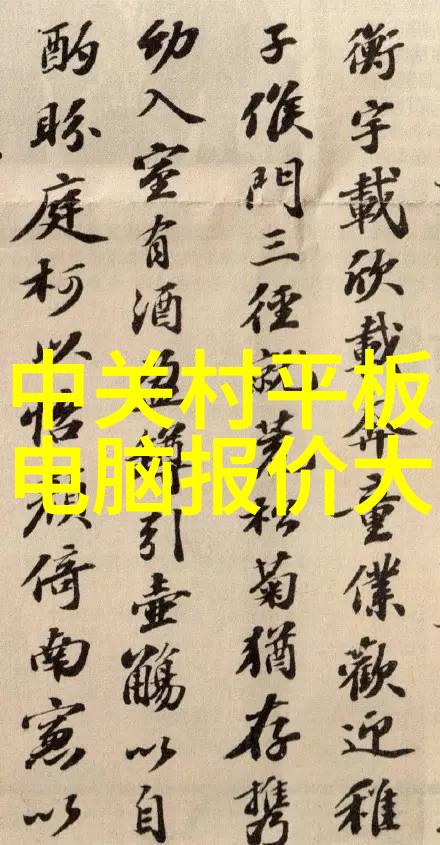 中关村平板
电脑报价大
衡宇載欣載奔童僕歡迎稚
子候門三徑就荒松菊猶存携
幼入室有酒盈樽引壺觴以自
酌眄庭柯以怡顏倚南窻以